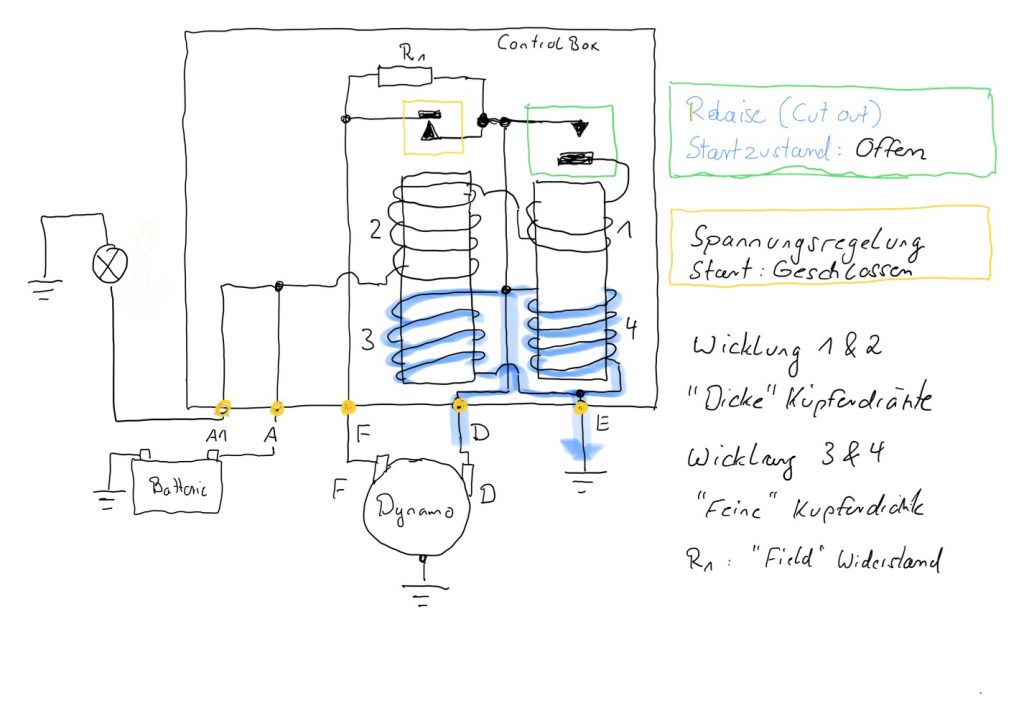 Control Box
R1
Relaise (Cut out)
Startzustand: Offen
2
1
Spannungsregelung
Start: Geschlossen
3
4
Wicklung 1 & 2
"Dicke" Kupferdrähte
A1
A
F
D
E
Wicklung 3 & 4
Batterie
F
D
Dynamo
"Feine" Kupferdrähte
R1: "Field" Widerstand